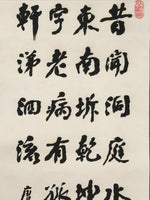 昔聞洞庭水
東南坼乾坤
字老病有孤
軒涕泗流唐